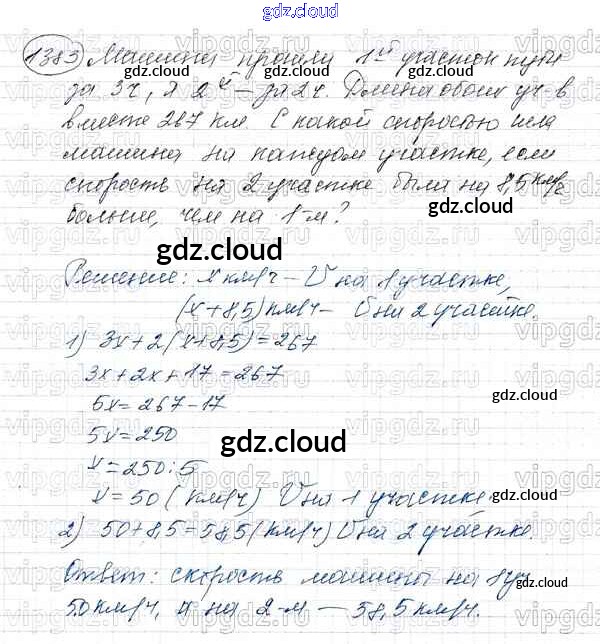 gdz.cloud
1383) Машина прошла 1ый участок пути
gdz.cloud
за 3ч, а 2ый – за 2ч. Длина обоих уч-в
вместе 267 км. С какой скоростью шла
машина на каждом участке, если
скорость на 2 участке была на 8,5 км/ч
больше, чем на 1-м?
gdz.cloud
Решение: x км/ч – V на 1 участке,
(x+8,5) км/ч – V на 2 участке.
1) 3x+2(x+8,5)=267
3x+2x+17=267
gdz.cloud
5x=267-17
5x=250
gdz.cloud
x=250:5
x=50 (км/ч) V на 1 участке.
gdz.cloud
2) 50+8,5=58,5 (км/ч) V на 2 участке.
Ответ: скорость машины на 1 уч.
gdz.cloud
50 км/ч, а на 2-м – 58,5 км/ч.